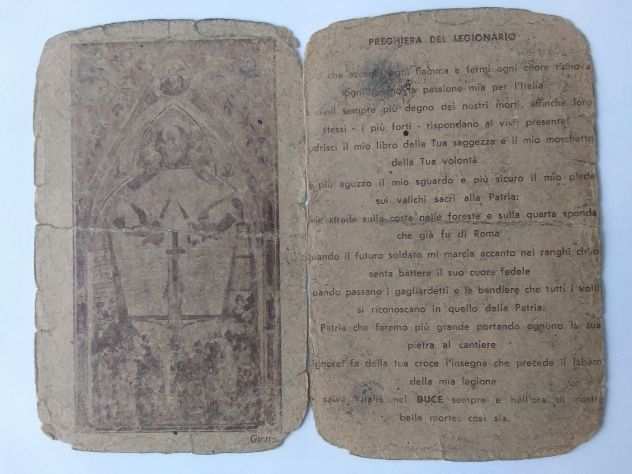 PREGHIERA DEL LEGIONARIO
che ogni fiamma e fermi ogni cuore
passione mia per l'Italia
sempre più degno dei nostri morti, affinchè loro
stessi - i più forti - rispondano ai vivi: presente!
il mio libro della Tua saggezza e il mio moschetto
della Tua volontà
più aguzzo il mio sguardo e più sicuro il mio piede
sui valichi sacri alla Patria:
strade sulla costa nelle foreste e sulla quarta sponda
che già fu di Roma
il futuro soldato mi marcia accanto nei ranghi
senta battere il suo cuore fedele
passano i gagliardetti e le bandiere che tutti i volti
si riconoscano in quello della Patria:
Patria che faremo più grande portando ognuno la sua
pietra al cantiere
fa della tua croce l'insegna che precede il labaro
della mia legione
nel BUCE sempre e nell'ora di nostra
bella morte: così sia.